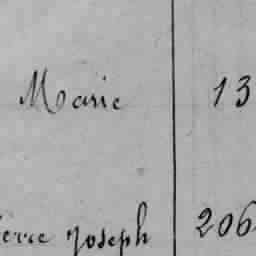 Marie 13
ierre joseph 206